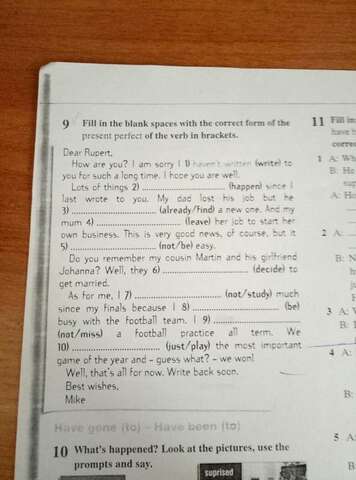 9 Fill in the blank spaces with the correct form of the
present perfect of the verb in brackets.
Dear Rupert,
How are you? I am sorry I 1) haven't written (write) to
you for such a long time. I hope you are well.
Lots of things 2) .......................... (happen) since I
last wrote to you. My dad lost his job but he
3) .......................... (already/find) a new one. And my
mum 4) .......................... (leave) her job to start her
own business. This is very good news, of course, but it
5) .......................... (not/be) easy.
Do you remember my cousin Martin and his girlfriend
Johanna? Well, they 6) .......................... (decide) to
get married.
As for me, I 7) .......................... (not/study) much
since my finals because I 8) .......................... (be)
busy with the football team. I 9) ..........................
(not/miss) a football practice all term. We
10) .......................... (just/play) the most important
game of the year and - guess what? - we won!
Well, that's all for now. Write back soon.
Best wishes,
Mike
Have gone (to) - Have been (to)
10 What's happened? Look at the pictures, use the
prompts and say.
suprised
11 Fill in
have b
correc
1 A: Wh
B: He
sup
A: Ho
2 A:
B: N
h
j
3 A: V
B: I
4 A:
B:
5 A:
B